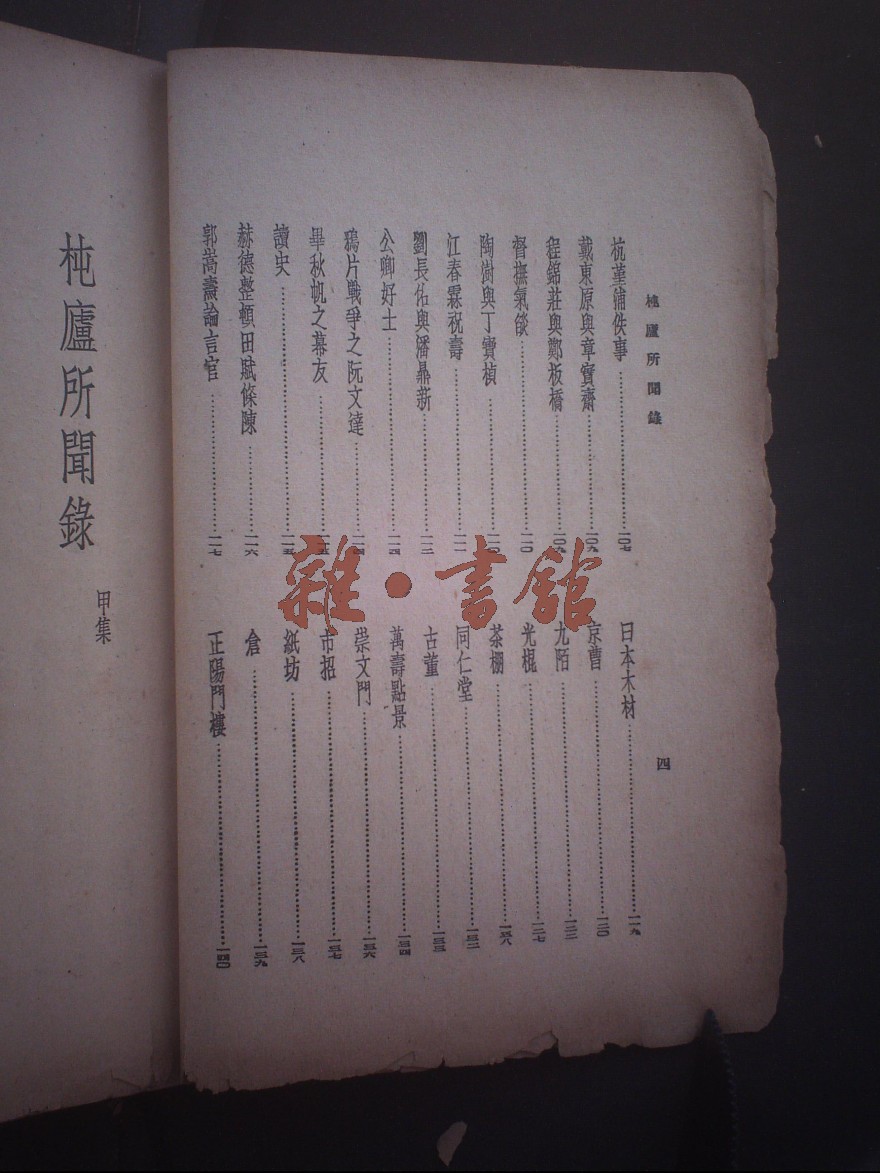 杶廬所聞錄
四
杭堇浦佚事……一〇七
戴東原與章實齋……一〇九
程錦莊與鄭板橋……一〇九
督撫氣燄……一一〇
陶澍與丁寶楨……一一〇
江春霖祝壽……一一一
劉長佑與潘鼎新……一一二
公卿好士……一一四
鴉片戰爭之阮文達……一一四
畢秋帆之幕友……一一五
讀史……一一五
赫德整頓田賦條陳……一一六
郭嵩燾論言官……一一七
日本木材……一一九
京曹……一二〇
九陌……一二二
光棍……一二七
茶棚……一二八
同仁堂……一三二
古董……一三三
萬壽點景……一三四
崇文門……一三六
市招……一三七
紙坊……一三八
倉……一三九
正陽門樓……一四〇
杶廬所聞錄
甲集
雜·書館